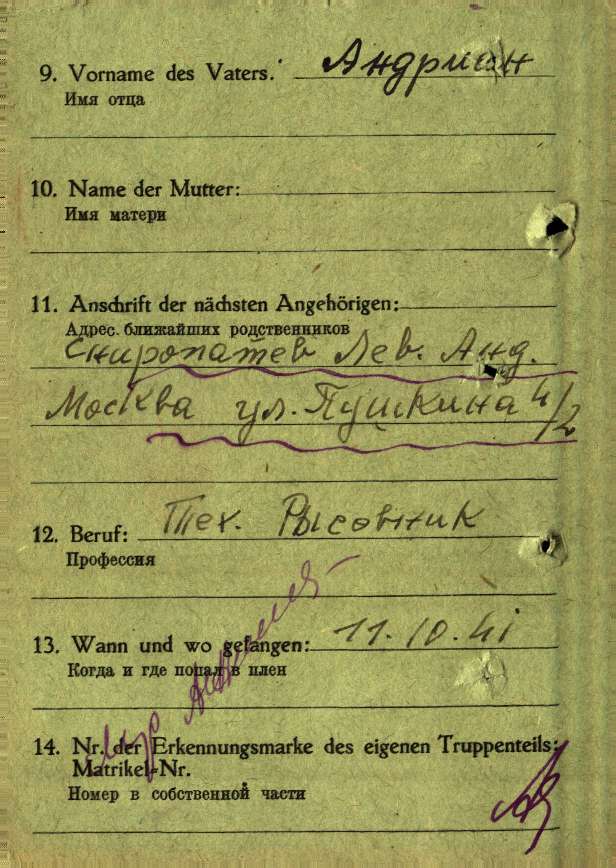 9. Vorname des Vaters: Андриан
Имя отца
10. Name der Mutter:
Имя матери
11. Anschrift der nächsten Angehörigen:
Адрес ближайших родственников
Лев. Анд.
Москва ул. Пушкина 4/2
12. Beruf: Тех. Рысовник
Профессия
13. Wann und wo gefangen: 11.10.41
Когда и где попал в плен
14. Nr. der Erkennungsmarke des eigenen Truppenteils:
Matrikel-Nr.
Номер в собственной части